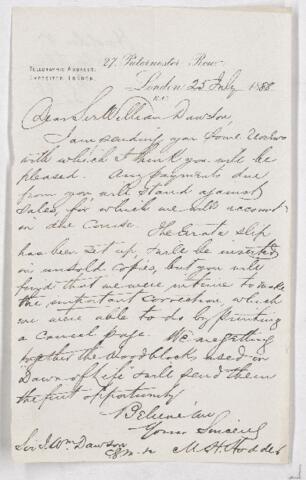 27, Paternoster Row
TELEGRAPHIC ADDRESS:
EXPOSITOR LONDON.
London 25 July 1888
E.C.
Dear Sir William Dawson,
I am sending you some
with which I think you will be
pleased. Any payments due
from you will stand against
sales, for which we will account
in due course. The Errata slip
has been set up, & will be inserted
in unsold copies, but you will
find that we were in time to make
the important correction, which
we were able to do by printing
a cancel page. We are getting
together the woodblocks used in
"Dawn of Life" & will send them
the first opportunity
Believe me
Yours Sincerely
Sir J. Wm Dawson M H Hodder